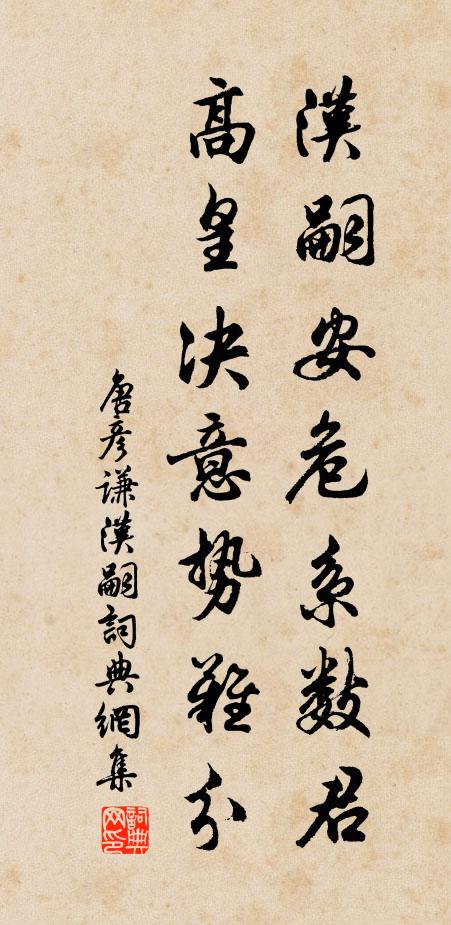 漢嗣安危系數君
高皇決意勢難分
唐彥謙漢嗣詞典網集
詞典
网印